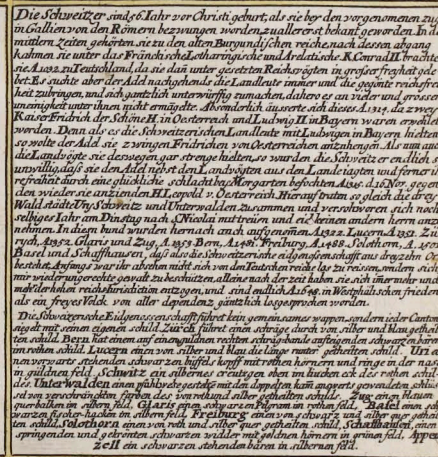 Die Schweitzer sind 56 Jahr vor Christi geburt, als sie beÿ den vorgenomenen zug
in Gallien von den Römern bezwungen worden, zu allererst bekant geworden. In den
mittlern Zeiten gehörten sie zu den alten Burgundischen reiche, nach dessen abgang
kahmen sie unter das Fränckische Lotharingische und Arelatische. K. Conrad II. brachte
sie A. 1032 zu Teutschland, da sie dan unter gesetzten Reichsvögten in großer freÿheit gele
bet. Es suchte aber der Adel nachgehends die Landleute immer und die gegönte reichsfreÿ
heit zubringen, und sich gantzlich unterwürffig zumachen, dahero es an vieler und grosser
uneinigkeit unter ihnen nicht ermangelte. Absonderlich äusserte sich dieses A. 1314. da zweÿ
Kaiser Fridrich der Schöne H. in Oesterreich und Ludwig II in Bayern waren erwehlet
worden. Denn als es die Schweitzerischen Landleute mit Ludwigen in Bayern hielten
so wolte der Adel sie zwingen Fridrichen von Oesterreichen anzuhengen. Als nun auch
die Landvögte sie deswegen gar strenge hielten, so wurden die Schweitzer endlich so
unwillig, daß sie den Adel nebst den Landvögten aus den Lande iagten und ferner ih
re freiheit durch eine glückliche schlacht beÿ Morgarten befochten A. 1315. d. 16 Nov. gegen
den wieder sie anziehenden H. Leopold v. Oesterreich. Hierauf traten so gleich die dreÿ
Wald städte Urÿ Schweitz und Unterwalden zusammen und verschworen sich noch
selbiges Jahr am Dinstag nach S. Nicolai mit treüen und eid keinen andern herrn anzu
nehmen. In diesn bund wurden hernach auch aufgenomen A. 1322. Lucern A. 1351. Zü
rych, A. 1352. Glaris und Zug, A. 1353. Bern, A. 1481. Freiburg, A. 1488. Solothorn, A. 1501.
Basel und Schaffhausen, daß also die Schweitzerische eidgenossenschafft aus dreÿzehn Or
bestehet. Anfangs war ihr absehen nicht sich von den Teutschen reiche los zu reissen, sondern sich
mir wieder ungerechte gewalt zu beschützen, alleine nach der zeit haben sie sich immer mehr und
mehr der hohen reichs Jurisdiction entzogen, und sind endlich A. 1648. in Westphälischen frieden
als ein freyes Volck von aller dependenz gäntzlich losgesprochen worden.
Die Schweizerische Eidgenossenschafft führet kein gemeinsames wappen, sondern ieder Canton
siegelt mit seinen eigenen schild. Zürch führet einen schräge durch von silber und blau getheil
ten schild. Bern hat einem auf einen gulden rechten schrägbande aufsteigenden schwarzen bären
im rothen schild. Lucern einen von silber und blau die länge runter getheilten schild. Uri ei
nen verwarts sehenden schwarzen büffels kopff mit rothen hörnern und ringe in der nase
in güldnen feld. Schwitz ein silbernes creutzgen oben im lincken eck des rothen schil
des. Unterwalden einen
von roth und silber getheilten schilds. Zug einen blauen
querbalken im silbern feld. Glaris einen schwarzen Pilgram im rothen feld. Basel einen sch
warzen fischer-hacken im silbern feld. Freyburg einen von schwartz und silber quer getheil
ten schild. Solothorn einen von roth und silber quer getheilten schild. Schafhausen einen
springenden und gekrönten schwarzen widder mit goldnen hörnern in grünen feld. Appen
zell ein schwarzen stehenden bären in silbernen feld.